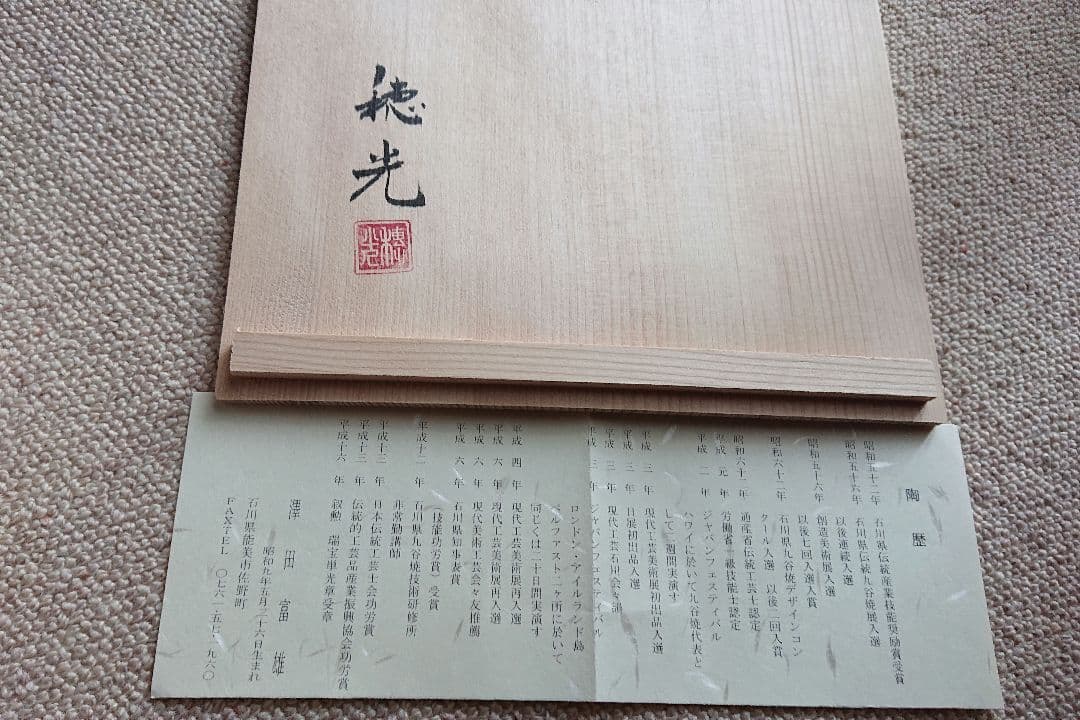 穂光
陶歴
昭和五十二年 石川県伝統産業技能奨励賞受賞
昭和五十六年 石川県伝統九谷焼展入選
以後連続入選
昭和五十六年 創造美術展入選
以後七回入選入賞
昭和六十二年 石川県九谷焼デザインコン
クール入選 以後二回入賞
昭和六十二年 通産省伝統工芸士認定
平成元年 労働省一級技能士認定
平成二年 ジャパンフェスティバル
ハワイに於いて九谷焼代表と
して二週間実演す
平成三年 現代工芸美術展初出品入選
平成三年 日展初出品入選
現代工芸石川会
平成三年 ジャパンフェスティバル
ロンドン・アイルランド島
ベルファスト二ヶ所に於いて
同じくは二十日間実演す
平成四年 現代工芸美術展再入選
平成六年 現代工芸美術展再入選
平成六年 現代美術工芸会々友推薦
平成六年 石川県知事表賞
(技能功労賞)受賞
平成十二年 石川県九谷焼技術研修所
非常勤講師
平成十二年 日本伝統工芸士会功労賞
平成十三年 伝統的工芸品産業振興協会功労賞
平成十六年 叙勲 瑞宝単光章受章
澤田富雄
昭和九年五月二十六日生まれ
石川県能美市佐野町
FAXTEL 〇七六一